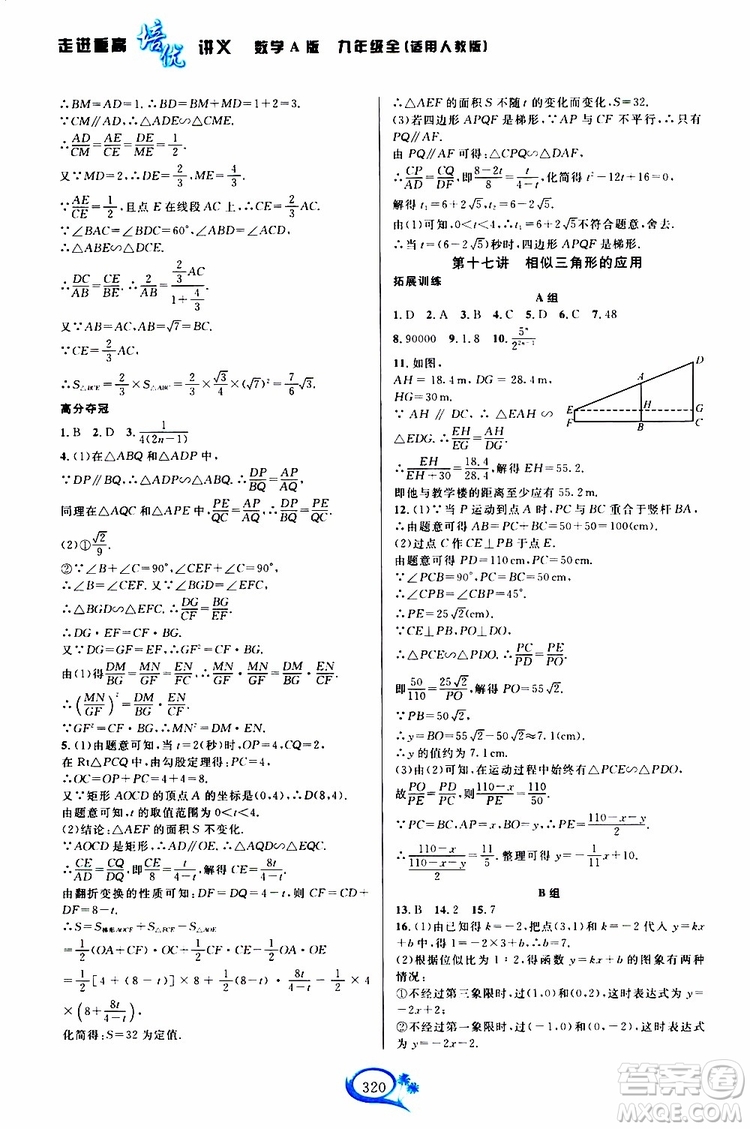 走进重高 培优 讲义 数学A版 九年级全(适用人教版)
∴BM=AD=1.
∵CM∥AD,∴△ADE∽△CME.
∴AD/CM=AE/CE=DE/ME=1/2.
又∵MD=2,∴DE=2/3,ME=4/3.
∵AE/CE=1/2,且点E在线段AC上,∴CE/AC=2/3.
∵∠BAC=∠BDC=60°,∠ABE=∠DCE,
∴△ABE∽△DCE.
∴DC/AB=CE/BE=(2/3 AC)/(2/3 AB)=AC/AB.
又∵AB=AC,∴AB=√7=BC.
∵CE/AC=2/3,
∴S△BCE=2/3×S△ABC=2/3×√3/4×(√7)²=7/6√3.
高分夺冠
1.B 2.D 3.1/4(2n-1)
4.(1)在△ABQ和△ADP中,
∵DP∥BQ,∴△ADP∽△ABQ,∴DP/BQ=AP/AQ.
同理在△AQC和△APE中,PE/QC=AP/AQ,∴DP/BQ=PE/QC.
(2)①√2/9.
②∵∠B+∠C=90°,∠CEF+∠C=90°,
∴∠B=∠CEF.又∵∠BGD=∠EFC,
∴△BGD∽△EFC.∴DG/CF=BG/EF.
∴DG·EF=CF·BG.
又∵DG=GF=EF,∴GF²=CF·BG.
由(1)得DM/BG=MN/GF=EN/CF.∴MN/GF·MN/GF=DM/BG·EN/CF.
∴(MN/GF)²=DM/BG·EN/CF.
∵GF²=CF·BG.∴MN²=DM·EN.
5.(1)由题意可知,当t=2(秒)时,OP=4,CQ=2,
在Rt△PCQ中,由勾股定理得PC=4,
∴OC=OP+PC=4+4=8.
又∵矩形AOCD的顶点A的坐标是(0,4),∴D(8,4).
由题意可知,t的取值范围为0<t<4.
(2)结论:△AEF的面积S不变化.
∵AOCD是矩形,∴AD∥OE.∴△AQD∽△EQC.
∴CE/AD=CQ/DQ,即CE/8=t/4-t,解得CE=8t/4-t.
由翻折变换的性质可知:DF=DQ=4-t,则CF=CD+DF=8-t.
∴S=S梯形AOCF+S△FCE-S△AOE
=1/2(OA+CF)·OC+1/2CF·CE-1/2OA·OE
=1/2[4+(8-t)]×8+1/2(8-t)·8t/4-t-1/2×4×(8+8t/4-t).
化简得:S=32为定值.
∴△AEF的面积S不随t的变化而变化,S=32.
(3)若四边形APQF是梯形,∵AP与CF不平行,∴只有
PQ∥AF.
由PQ∥AF可得:△CPQ∽△DAF,
∴CP/AD=CQ/DF,即8-2t/8=t/4-t,化简得t²-12t+16=0,
解得t₁=6+2√5,t₂=6-2√5.
由(1)可知,0<t<4,∴t₁=6+2√5不符合题意,舍去.
∴当t=(6-2√5)秒时,四边形APQF是梯形.
第十七讲 相似三角形的应用
拓展训练
A组
1.D 2.A 3.B 4.C 5.D 6.C 7.48
8.90000 9.1.8
11.如图,
AH=18.4m,DG=28.4m,
HG=30m.
∵AH∥DC,∴△EAH∽
△EDG.∴EH/EG=AH/DG.
∴EH/EH+30=18.4/28.4,解得EH=55.2.
即他与教学楼的距离至少应为55.2m.
A
B
C
D
E
F
G
H
12.(1)∵当P运动到点A时,PC与BC重合于竖杆BA,
∴由题意可得y=OA=OB-AB=10(cm).
(2)过点C作CE⊥PB于点E.
由题意可得PD=110cm,PC=50cm.
∵∠PCB=90°,PC=BC,
∴∠CPB=∠CBP=45°.
∴PE=25√2(cm).
∵CE⊥PB,PO⊥BO,∠CPE=∠OPD,
∴△PCE∽△OPD,∴PC/PD=PE/PO.
即50/110=25√2/PO,解得PO=55√2.
∵PB=50√2,
∴y=BO=55√2-50√2=5√2≈7.1(cm).
∴y的值约为7.1cm.
(3)由(2)可知,在运动过程中始终有△PCE∽△PDO.
故PO/PE=PD/PC,∴110-x/PE=110/50.
∵PC=BC,PE⊥CE,∴PE=1/2PB=110-x-y/2.
∴110-x/(110-x-y/2)=11/5.整理可得y=10-1/11x.
B组
13.B 14.2 15.7
16.(1)由已知得k=-2,把点(3,1)和k=-2代入y=kx
+b中,得1=-2×3+b,∴b=7.
(2)根据位似比为1∶2,得函数y=kx+b的图象有两种
情况:
①不经过第三象限时,过(1,0)和(0,2),这时表达式为y=
-2x+2;
②不经过第一象限时,过(-1,0)和(0,-2),这时表达式
为y=-2x-2.
320
答案圈
MXQE.COM